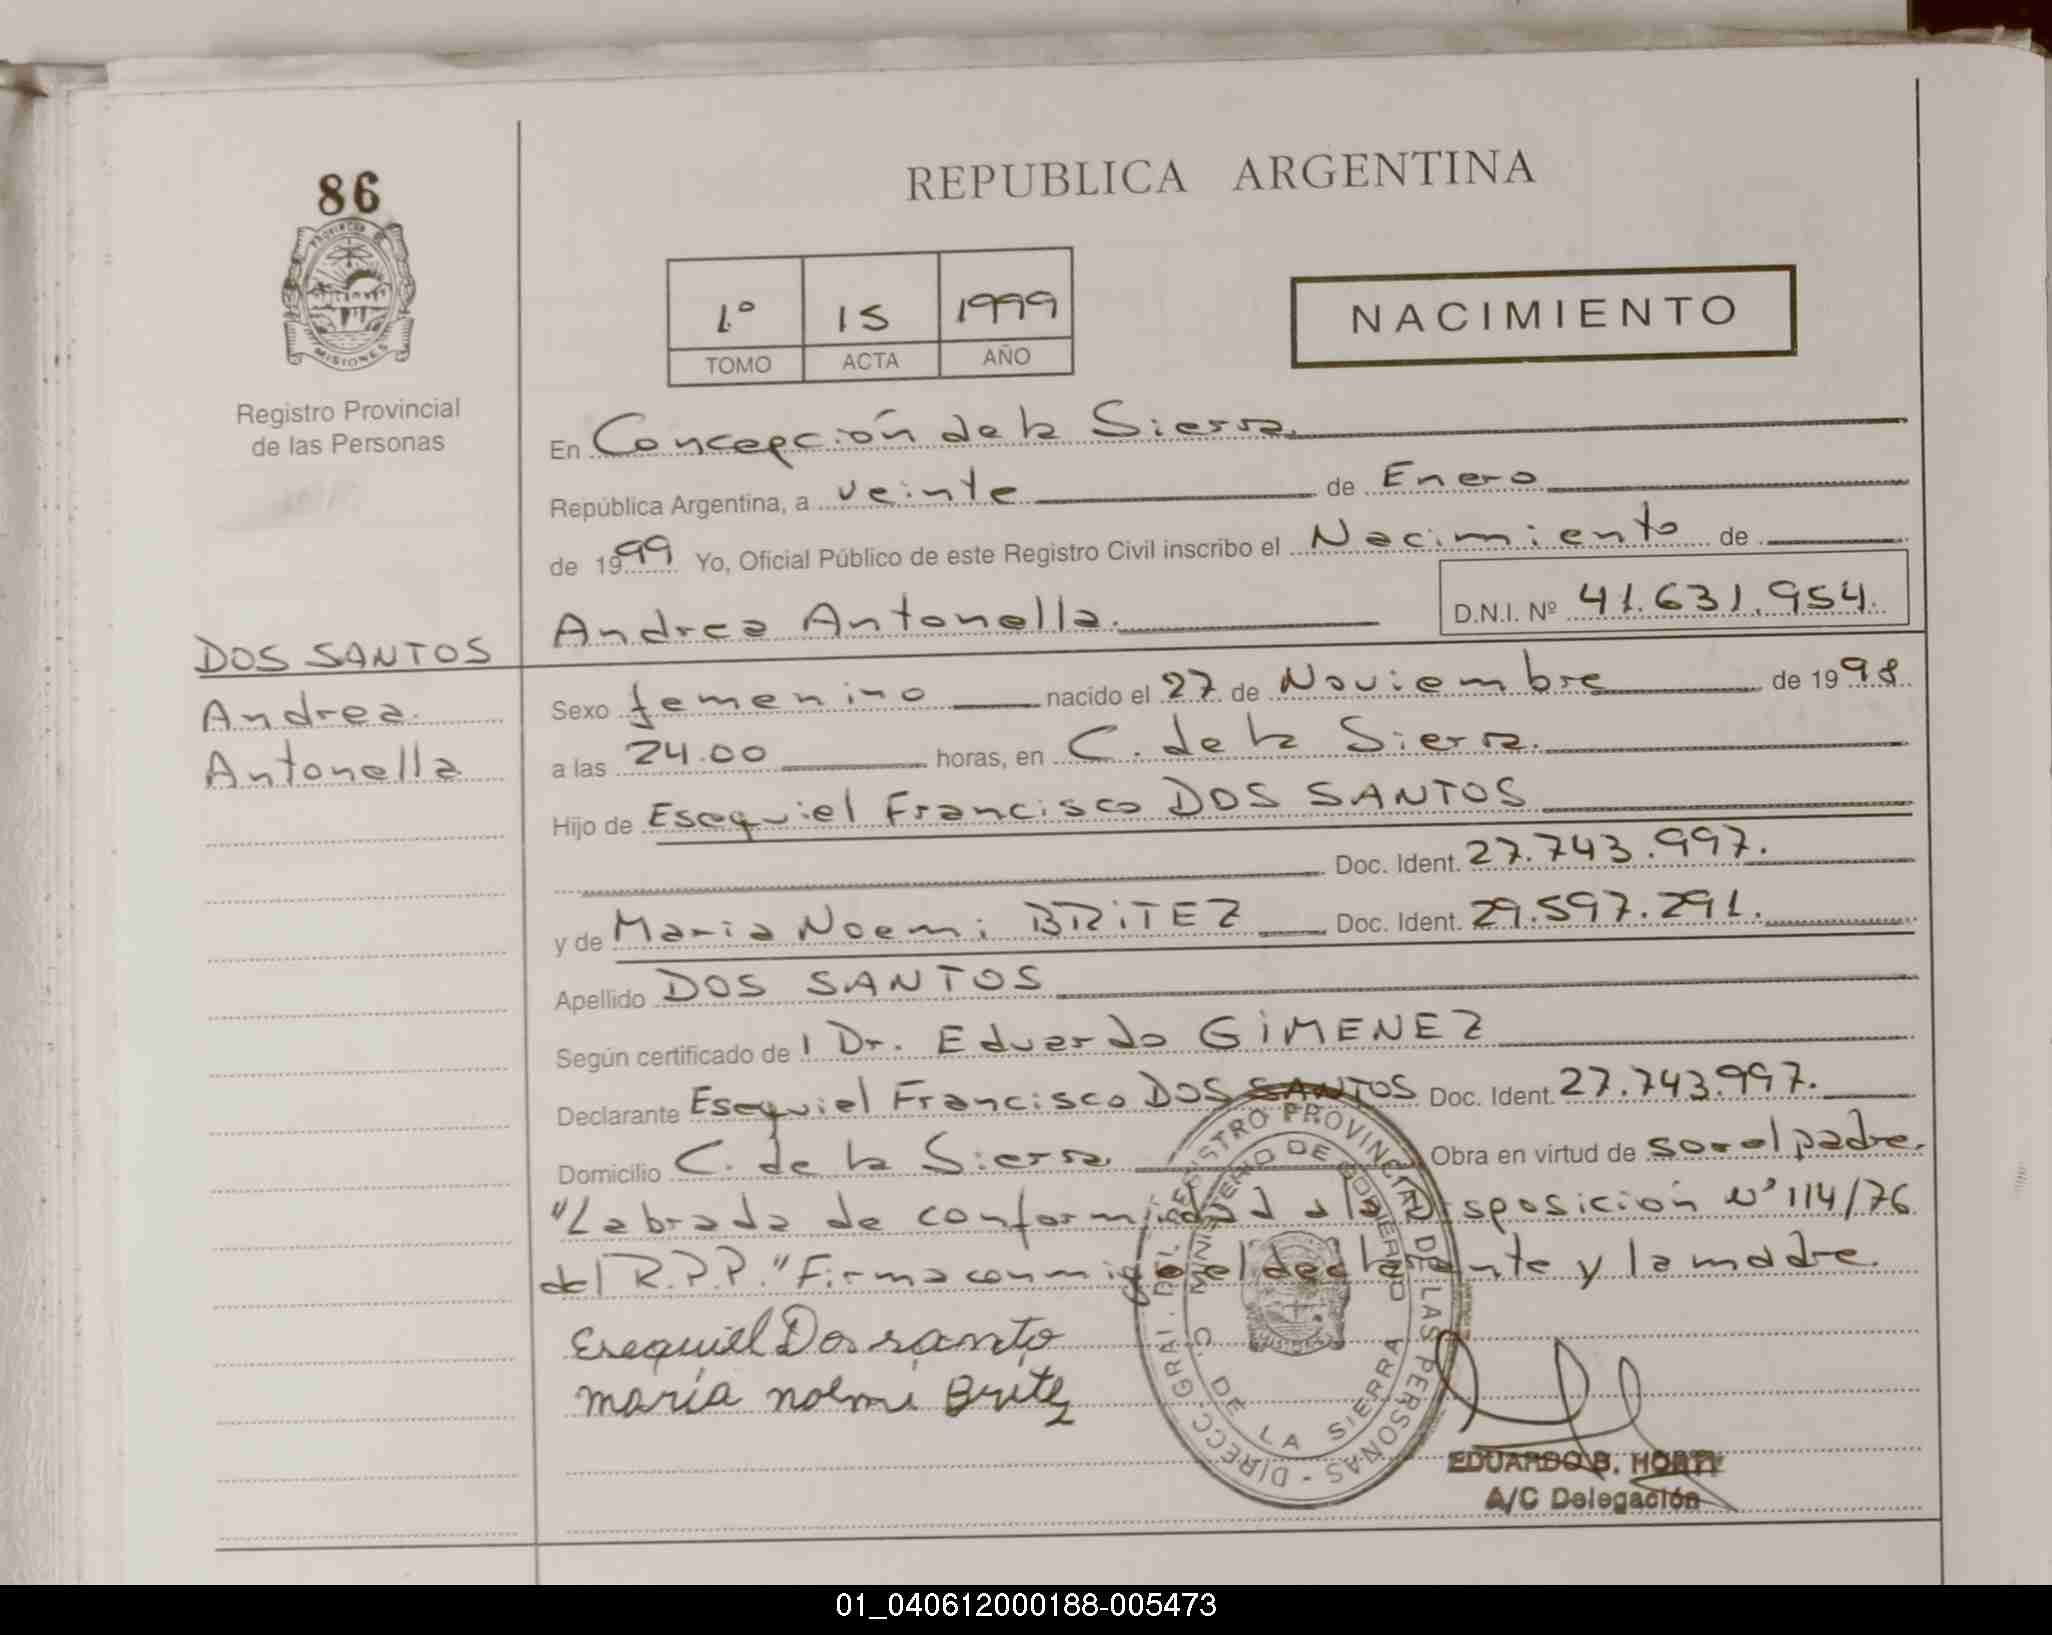 86
PROVINCIA DE
MISIONES
Registro Provincial
de las Personas
REPUBLICA ARGENTINA
1º 15 1999
TOMO ACTA AÑO
NACIMIENTO
En Concepción de la Sierra.
República Argentina, a veinte de Enero
de 1999 Yo, Oficial Público de este Registro Civil inscribo el Nacimiento de
Andrea Antonella. D.N.I. Nº 41.631.954.
DOS SANTOS
Andrea
Antonella
Sexo femenino nacido el 27 de Noviembre de 1998
a las 24.00 horas, en C. de la Sierra.
Hijo de Esequiel Francisco DOS SANTOS
Doc. Ident. 27.743.997.
y de Maria Noemi BRITEZ Doc. Ident. 29.597.291.
Apellido DOS SANTOS
Según certificado de l Dr. Eduardo GIMENEZ
Declarante Esequiel Francisco DOS SANTOS Doc. Ident. 27.743.997.
Domicilio C. de la Sierra Obra en virtud de ser el padre.
"Labrada de conformidad a la Disposición Nº 114/76
del R.P.P." Firma conmigo el declarante y la madre.
Esequiel Dos santo
maría noemi Britez
DIRECC. GRAL. DEL REGISTRO PROVINCIAL DE LAS PERSONAS -
MINISTERIO DE GOBIERNO
C. DE LA SIERRA
EDUARDO B.
A/C Delegación
01_040612000188-005473